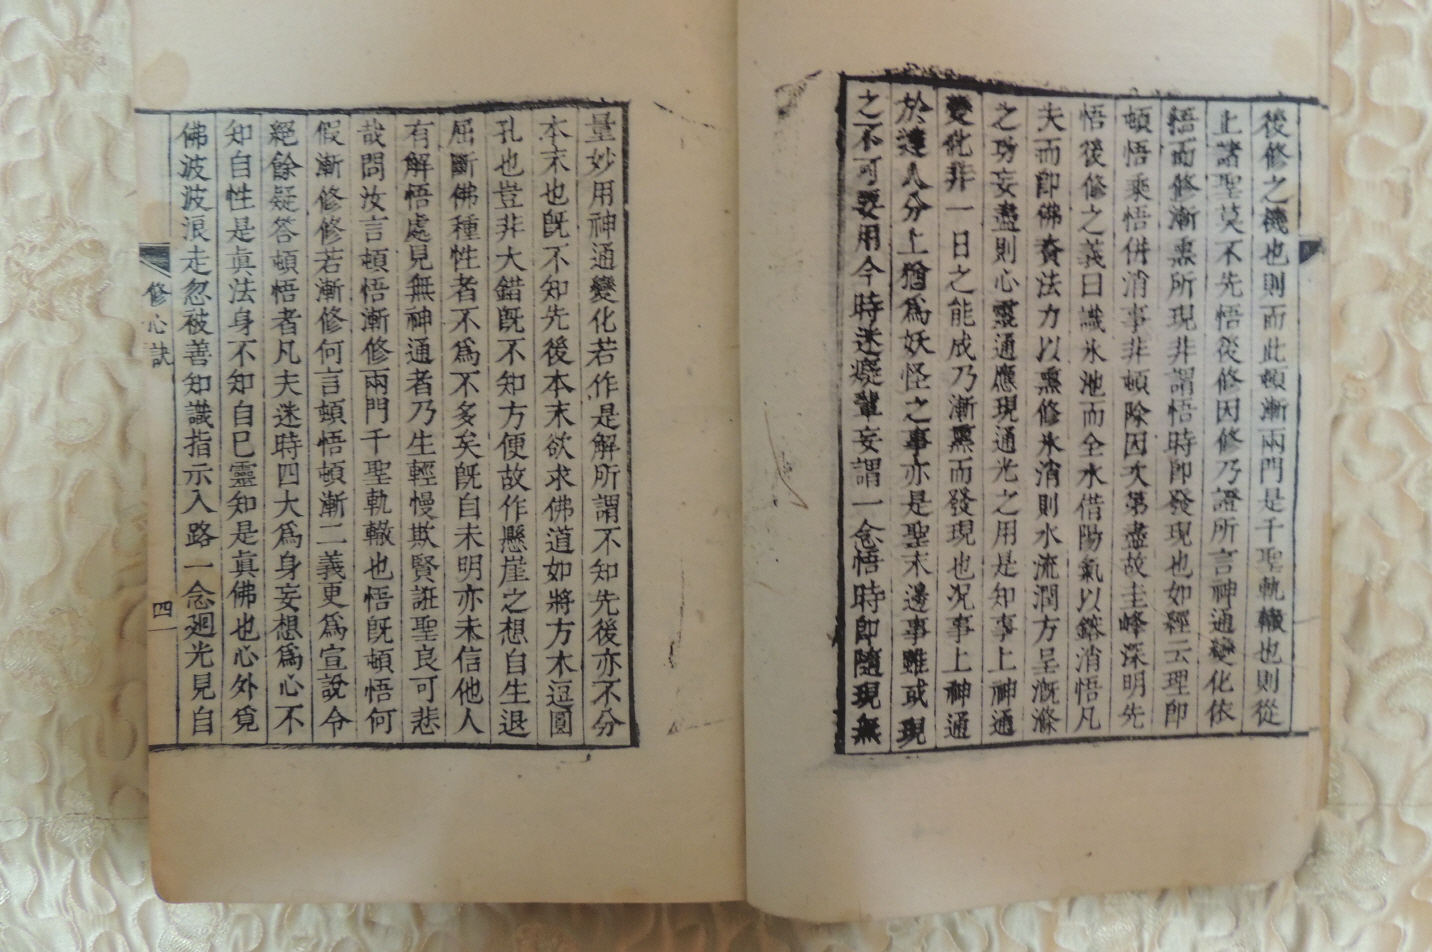 後修之機也則而此頓漸兩門是千聖軌轍也則從
上諸聖莫不先悟後修因修乃證所言神通變化依
悟而修漸熏所現非謂悟時即發現也如經云理即
頓悟乘悟併消事非頓除因次第盡故圭峰深明先
悟後修之義曰識氷池而全水借陽氣以鎔消悟凡
夫而即佛資法力以熏修氷消則水流潤方呈漑滌
之功妄盡則心靈通應現通光之用是知事上神通
變化非一日之能成乃漸熏而發現也况事上神通
於達人分上猶爲妖怪之事亦是聖末邊事雖或現
之不可要用今時迷癡輩妄謂一念悟時即隨現無
量妙用神通變化若作是解所謂不知先後亦不分
本末也旣不知先後本末欲求佛道如將方木逗圓
孔也豈非大錯旣不知方便故作懸崖之想自生退
屈斷佛種性者不爲不多矣旣自未明亦未信他人
有解悟處見無神通者乃生輕慢欺賢誑聖良可悲
哉問汝言頓悟漸修兩門千聖軌轍也悟旣頓悟何
假漸修修若漸修何言頓悟頓漸二義更爲宣說令
絕餘疑答頓悟者凡夫迷時四大爲身妄想爲心不
知自性是眞法身不知自己靈知是眞佛也心外覓
佛波波浪走忽被善知識指示入路一念廻光見自
修心訣
四